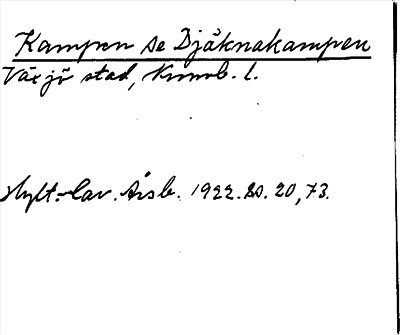 Kampen se Djäknakampen
Växjö stad, Kronob. l.
Hylt.-Cav. Årsb. 1922. s. 20, 73.